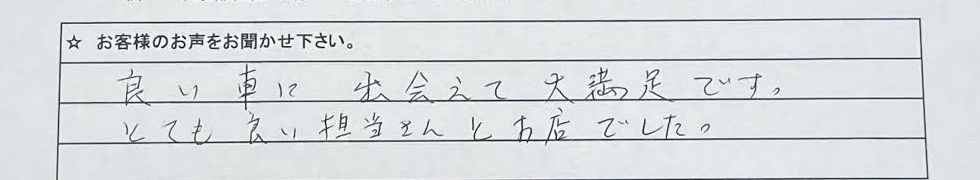 ☆ お客様のお声をお聞かせ下さい。
良い車に出会えて大満足です。
とても良い担当さんとお店でした。